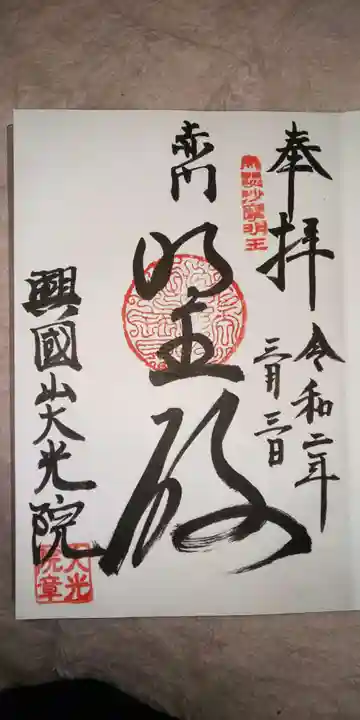 奉拝
令和二年
三月三日
沙摩明王
赤門
明王殿
興國山大光院
大光院章